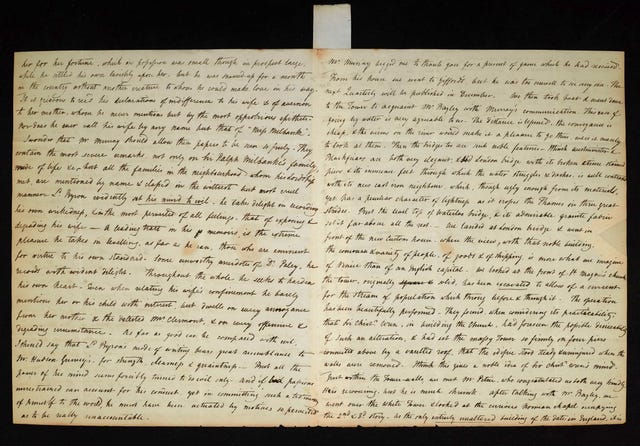 her for her fortune, which on possession was small though in prospect large,
while he settled his own lavishly upon her. but he was mewed up for a month
in the country without another creature to whom he could make love in his way.
It is tedious to read his declarations of indifference to his wife & of aversion
to her mother, whom he never mentions but by the most opprobrious epithets.
nor does he ever call his wife by any name but that of "Miss Milbanke".
I wonder that Mr Murray should allow these papers to be seen so freely. They
contain the most severe remarks not only on Sir Ralph Milbanke's family,
mode of life &c, but all the families in the neighbourhood whom his Lordship
met, are mentioned by name & classed in the wittiest but most cruel
manner. Ld Byron evidently he takes delight in recording
his own wickedness, & in the most perverted of all feelings, that of exposing &
degrading his wife — A leading trait in his memoirs is the extreme
pleasure he takes in levelling, as far as he can, those who are eminent
for virtue to his own standard. Some unworthy anecdote of Dr Paley, he
records with evident delight. Throughout the whole he seeks to harden
his own heart. Even when relating his wife's confinement he barely
mentions her or his child with interest but dwells on every annoyance
from her mother & the detested Mrs Clermont, & on every offensive &
degrading circumstance. As far as good can be compared with evil,
I should say that Ld Byron's mode of writing bears great resemblance to
Mr Hudson Gurney's, for strength, clearness & quaintness — But all the
power of his mind seems forcibly turned to do evil only. And if passions
unrestrained can account for his conduct, yet in committing such a testimony
of himself to the world, he must have been actuated by motives so perverted
as to be really unaccountable.
Mr Murray begged me to thank you for a present of game which he had received.
From his house we went to Gifford's, but he was too unwell to see any one. The
next Quarterly will be published in December. We then took boat & went down
to the Tower to acquaint Mr Bayley with Murray's communication. This way of
going by water is very agreeable here. The distance is speeded, the conveyance is
cheap, & the views on the river would make it a pleasure to go there were it merely
to look at them. Then the bridges are such noble features. I think Westminster &
Blackfriars are both very elegant, & old London bridge with its broken & time stained
piers & its immense feet through which the water struggles & dashes, is well contrasted
with its new cast iron neighbour which, though ugly enough from its material,
yet has a peculiar character of lightness as it crosses the Thames in three great
strides. But the level top of Waterloo bridge, & its admirable granite fabric
set it far above all the rest. We landed at London bridge & went in
front of the new Custom house. where the river, with that noble building,
the immense quantity of people, of goods & of shipping is more what we imagine
of Venice than of an English capital. We looked at the front of St Magnus church
the tower, originally solid, has been excavated to allow of a current
for the stream of population which throng before & through it. The operation
has been beautifully performed. They found when considering its practicability
that Sir Christr Wren, in building the Church, had foreseen the possible desirability
of such an alteration, & had set the massy tower so firmly on four piers
connected above by a vaulted roof, that the edifice stood ready buttressed when the
walls were removed. I think this gives a noble idea of Sir Christ Wren's mind.
Just within the Tower walls we met Mr Petrie, who congratulated us both very kindly
He is recovering, but he is much shrunk. After talking with Mr Bayley, we
went over the White Tower & looked at the curious Norman chapel occupying
the 2nd & 3d story. As the only entirely unaltered building of the date in England, it is